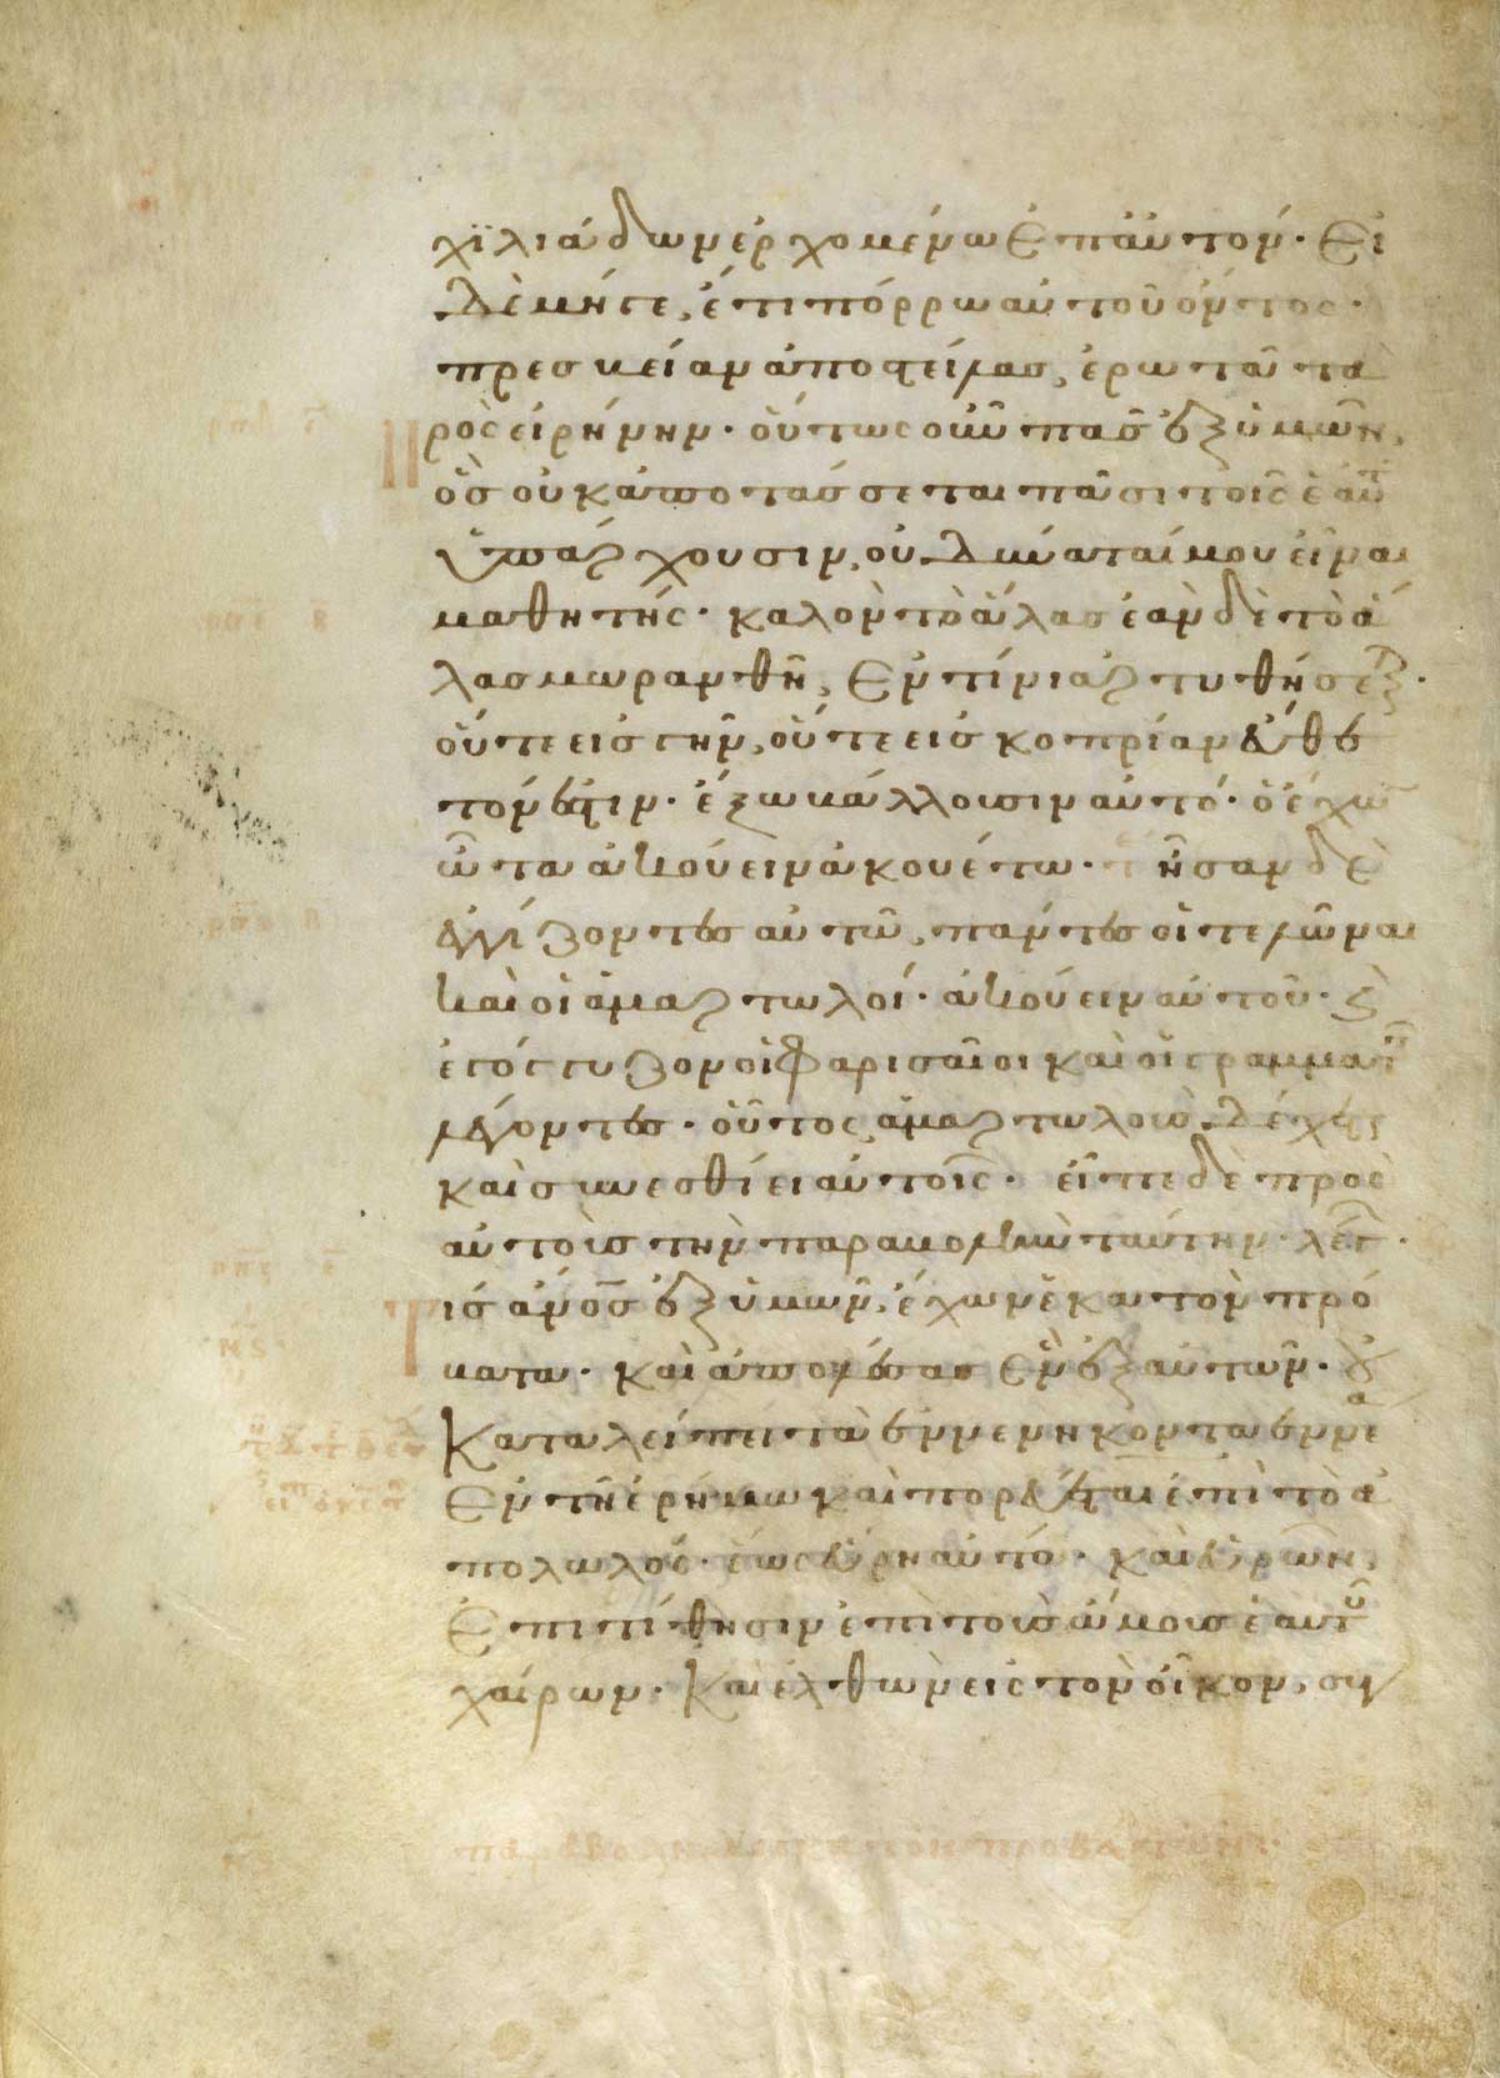 χϊλιάδων ἐρχομένω ἐπ αὐτόν· Εἰ
δὲ μήγε, ἔτι πόρρω αὐτοῦ ὄντος·
πρεσβείαν ἀποστείλας, ἐρωτᾶ τὰ
πρὸς εἰρήνην· οὕτως οὖν πᾶσ ἐξ ὑμῶν,
ὃσ οὐκ ἀποτάσσεται πᾶσι τοῖς ἑαυτοῦ
ὑπάρχουσιν, οὐ δύναταί μου εἶναι
μαθητής· καλὸν τὸ ἅλασ ἐὰν δὲ τὸ ἅ
λασ μωρανθῆ, Ἐν τίνι ἀρτυθήσεται·
οὔτε εἰσ γῆν, οὔτε εἰσ κοπρίαν εὔθε
τόν ἐστιν· ἔξω βάλλουσιν αὐτό· ὁ ἔχων
ὦτα ἀκούειν ἀκουέτω· ἦσαν δὲ
ἐγγίζοντεσ αὐτῶ, πάντεσ οἱ τελῶναι
καὶ οἱ ἁμαρτωλοί· ἀκούειν αὐτοῦ· καὶ
ἐγόγγυζον οἱ φαρισαῖοι καὶ οἱ γραμματεῖς
λέγοντεσ· οὗτος ἁμαρτωλοὺσ δέχεται
καὶ συνεσθίει αὐτοῖς· εἶπε δὲ πρὸς
αὐτοὺσ τὴν παραβολὴν ταύτην· λέγων·
Τίσ ἄνοσ ἐξ ὑμῶν, ἔχων ἑκατὸν πρό
βατα· καὶ ἀπολέσασ ἓν ἐξ αὐτῶν· οὐ
καταλείπει τὰ ἐννενηκονταεννέα
Ἐν τῆ ἐρήμω καὶ πορεύεται ἐπὶ τὸ ἀ
πολωλός· ἕως εὕρη αὐτό· καὶ εὑρὼν,
Ἐπιτίθησιν ἐπὶ τοὺσ ὤμουσ ἑαυτοῦ
χαίρων· Καὶ ἐλθὼν εἰς τὸν οἶκον, συγ